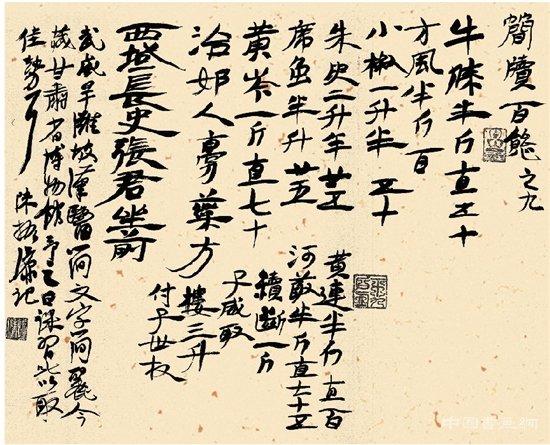 簡牘百態之九
牛膝半斤直五十
方風半斤百
小椒一升半五十
朱臾二升半廿五
席虫半升廿五
黄芩一斤直七十
治邯人膏藥方
西域長史張君坐前
黄連半斤直百
河菆半斤直七十五
續斷一斤
子威取
樓三升
付子卅枚
武威旱灘坡漢醫簡文字簡麗今
藏甘肅省博物館予日課習此以取
佳勢 陳振濂記
中国書画網